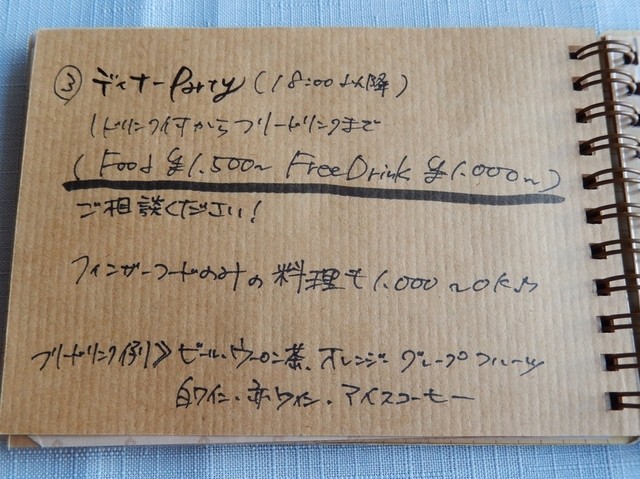 ③ ディナーParty (18:00以降)
1ドリンク付からフリードリンクまで
(Food ¥1.500~ FreeDrink ¥1.000~)
ご相談ください!
フィンガーフードのみの料理も1.000~OK♪
フリードリンク例》ビール・ウーロン茶、オレンジ・グレープフルーツ
白ワイン・赤ワイン・アイスコーヒー